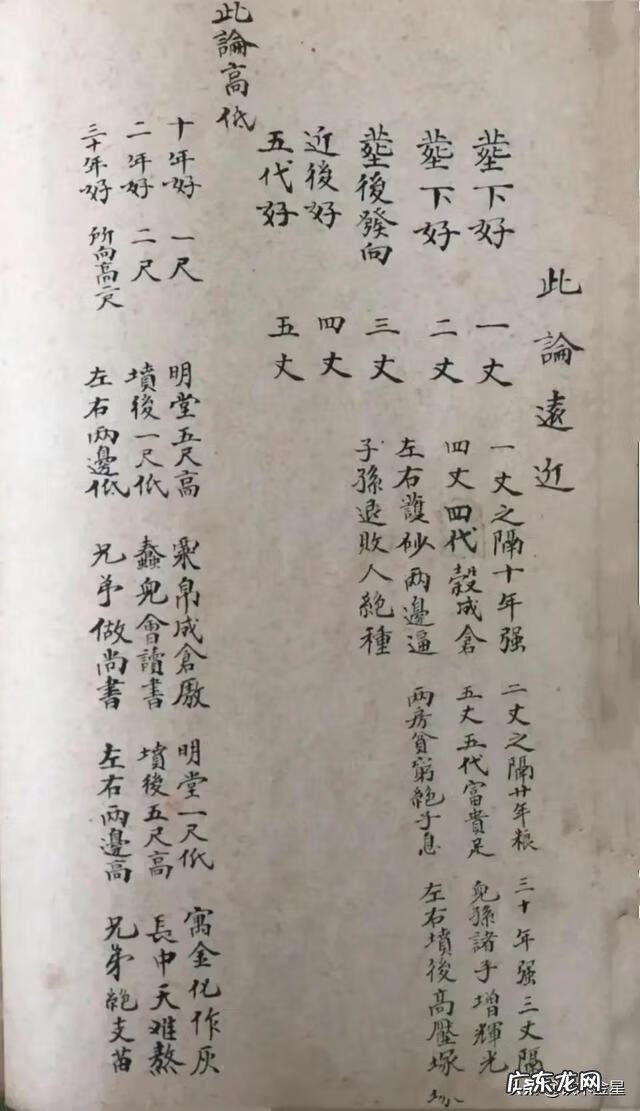 此論遠近
塟下好 一丈
塟下好 二丈
塟後發向 三丈
近後好 四丈
五代好 五丈
一丈之隔十年强 二丈之隔廿年粮 三十年强三丈隔
四丈四代穀成倉 五丈五代富貴足 兒孫諸子增輝光
左右護砂兩邊逼 兩房貧窮絕子息 左右墳後高壓塚
子孫退敗人絕種
此論高低
十年好 一尺 明堂五尺高 粟帛成倉廒 明堂一尺低 寓金化作灰
二年好 二尺 墳後一尺低 蠢兒會讀書 墳後五尺高 長中天难熬
三十年好 所向高 左右兩邊低 兄弟做尚書 左右兩邊高 兄弟絕支苗
广东龙网
金星